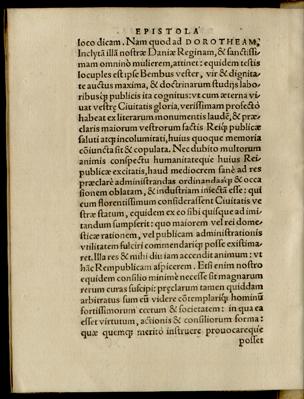 EPISTOLA
loco dicam. Nam quod ad DOROTHEAM,
Inclytã illã nostræ Daniæ Reginam, & sanctissi
mam omninò mulierem, attinet: equidem testis
locuples est ipse Bembus vester, vir & dignita
te auctus maxima, & doctrinarum studijs labo
ribusq́; publicis ita cognitus: vt cum æterna vi
uat vestrę Ciuitatis gloria, verissimam profectò
habeat ex literarum monumentis laudē, & præ
claris maiorum vestrorum factis Reisq́; publicæ
saluti atq́; incolumitati, huius quoque memoria
cõiuncta sit & copulata. Nec dubito multorum
animis conspectu humanitateque huius Rei-
publicæ excitatis, haud mediocrem sanè ad res
præclarè administrandas ordinandasq́; & occa
sionem oblatam, & industriam iniectã esse: qui
cum florentissimum considerassent Ciuitatis ve
stræ statum, equidem ex eo sibi quisque ad imi-
tandum sumpserit: quo maiorem vel rei dome-
sticæ rationem, vel publicam administrationis
vtilitatem fulciri commendariq́; posse existima
ret. Illa res & mihi diu iam accendit animum: vt
hãc Rempublicam aspicerem. Etsi enim nostro
equidem consilio minimè necesse sit magnarum
rerum curas suscipi: pręclarum tamen quiddam
arbitratus sum eũ videre cõtemplariq́; hominũ
fortissimorum cœtum & societatem: in qua ea
esset virtutum, actionis & consiliorum forma:
quæ quemq́; meritò instruere prouocareq́ue
posset